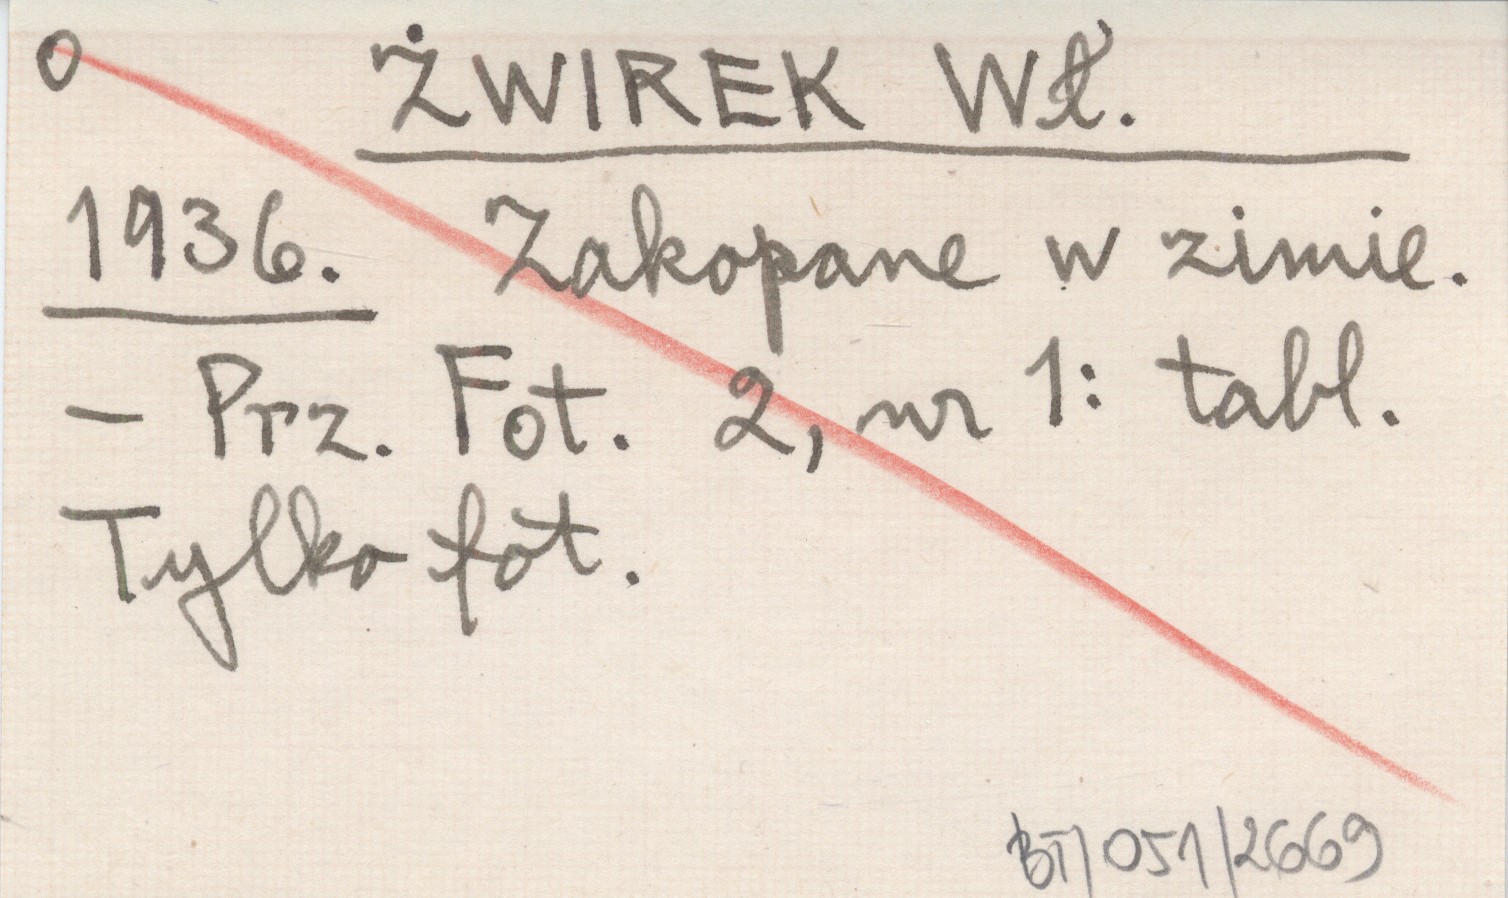 O ŻWIREK Wł.
1936. Zakopane w zimie.
– Prz. Fot. 2, nr 1: tabl.
Tylko fot.
BT/051/2669